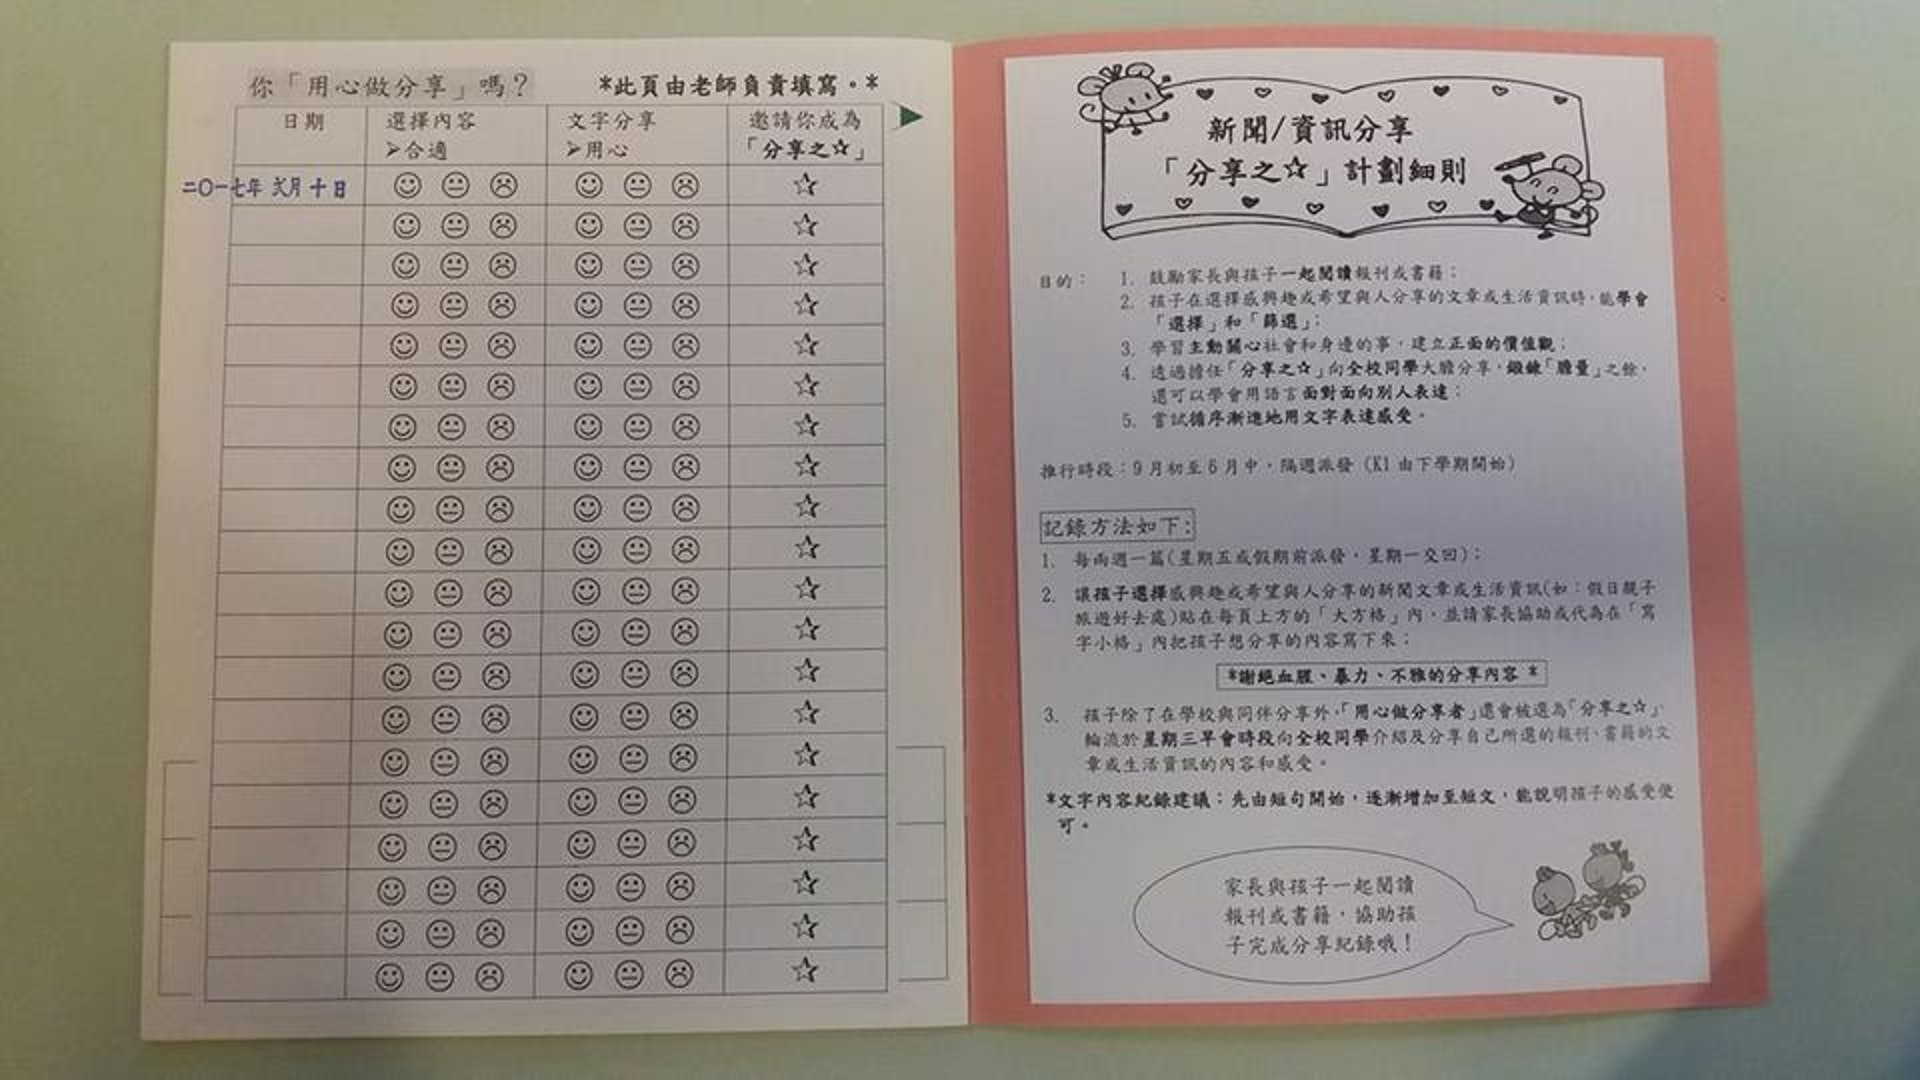 你「用心做分享」嗎？ *此頁由老師負責填寫。*
日期 選擇內容 文字分享 邀請你成為
➢合適 ➢用心 「分享之☆」
二〇一七年 弍月十日
新聞/資訊分享
「分享之☆」計劃細則
目的： 1. 鼓勵家長與孩子一起閱讀報刊或書籍；
2. 孩子在選擇感興趣或希望與人分享的文章或生活資訊時，能學會
「選擇」和「篩選」；
3. 學習主動關心社會和身邊的事，建立正面的價值觀；
4. 透過擔任「分享之☆」向全校同學大膽分享，鍛鍊「膽量」之餘，
還可以學會用語言面對面向別人表達；
5. 嘗試循序漸進地用文字表達感受。
推行時段：9月初至6月中，隔週派發（K1 由下學期開始）
記錄方法如下:
1. 每兩週一篇(星期五或假期前派發，星期一交回)；
2. 讓孩子選擇感興趣或希望與人分享的新聞文章或生活資訊(如：假日親子
旅遊好去處)貼在每頁上方的「大方格」內，並請家長協助或代為在「寫
字小格」內把孩子想分享的內容寫下來；
*謝絕血腥、暴力、不雅的分享內容 *
3. 孩子除了在學校與同伴分享外，「用心做分享者」還會被選為「分享之☆」，
輪流於星期三早會時段向全校同學介紹及分享自己所選的報刊、書籍的文
章或生活資訊的內容和感受。
*文字內容紀錄建議：先由短句開始，逐漸增加至短文，能說明孩子的感受便
可。
家長與孩子一起閱讀
報刊或書籍，協助孩
子完成分享紀錄哦！